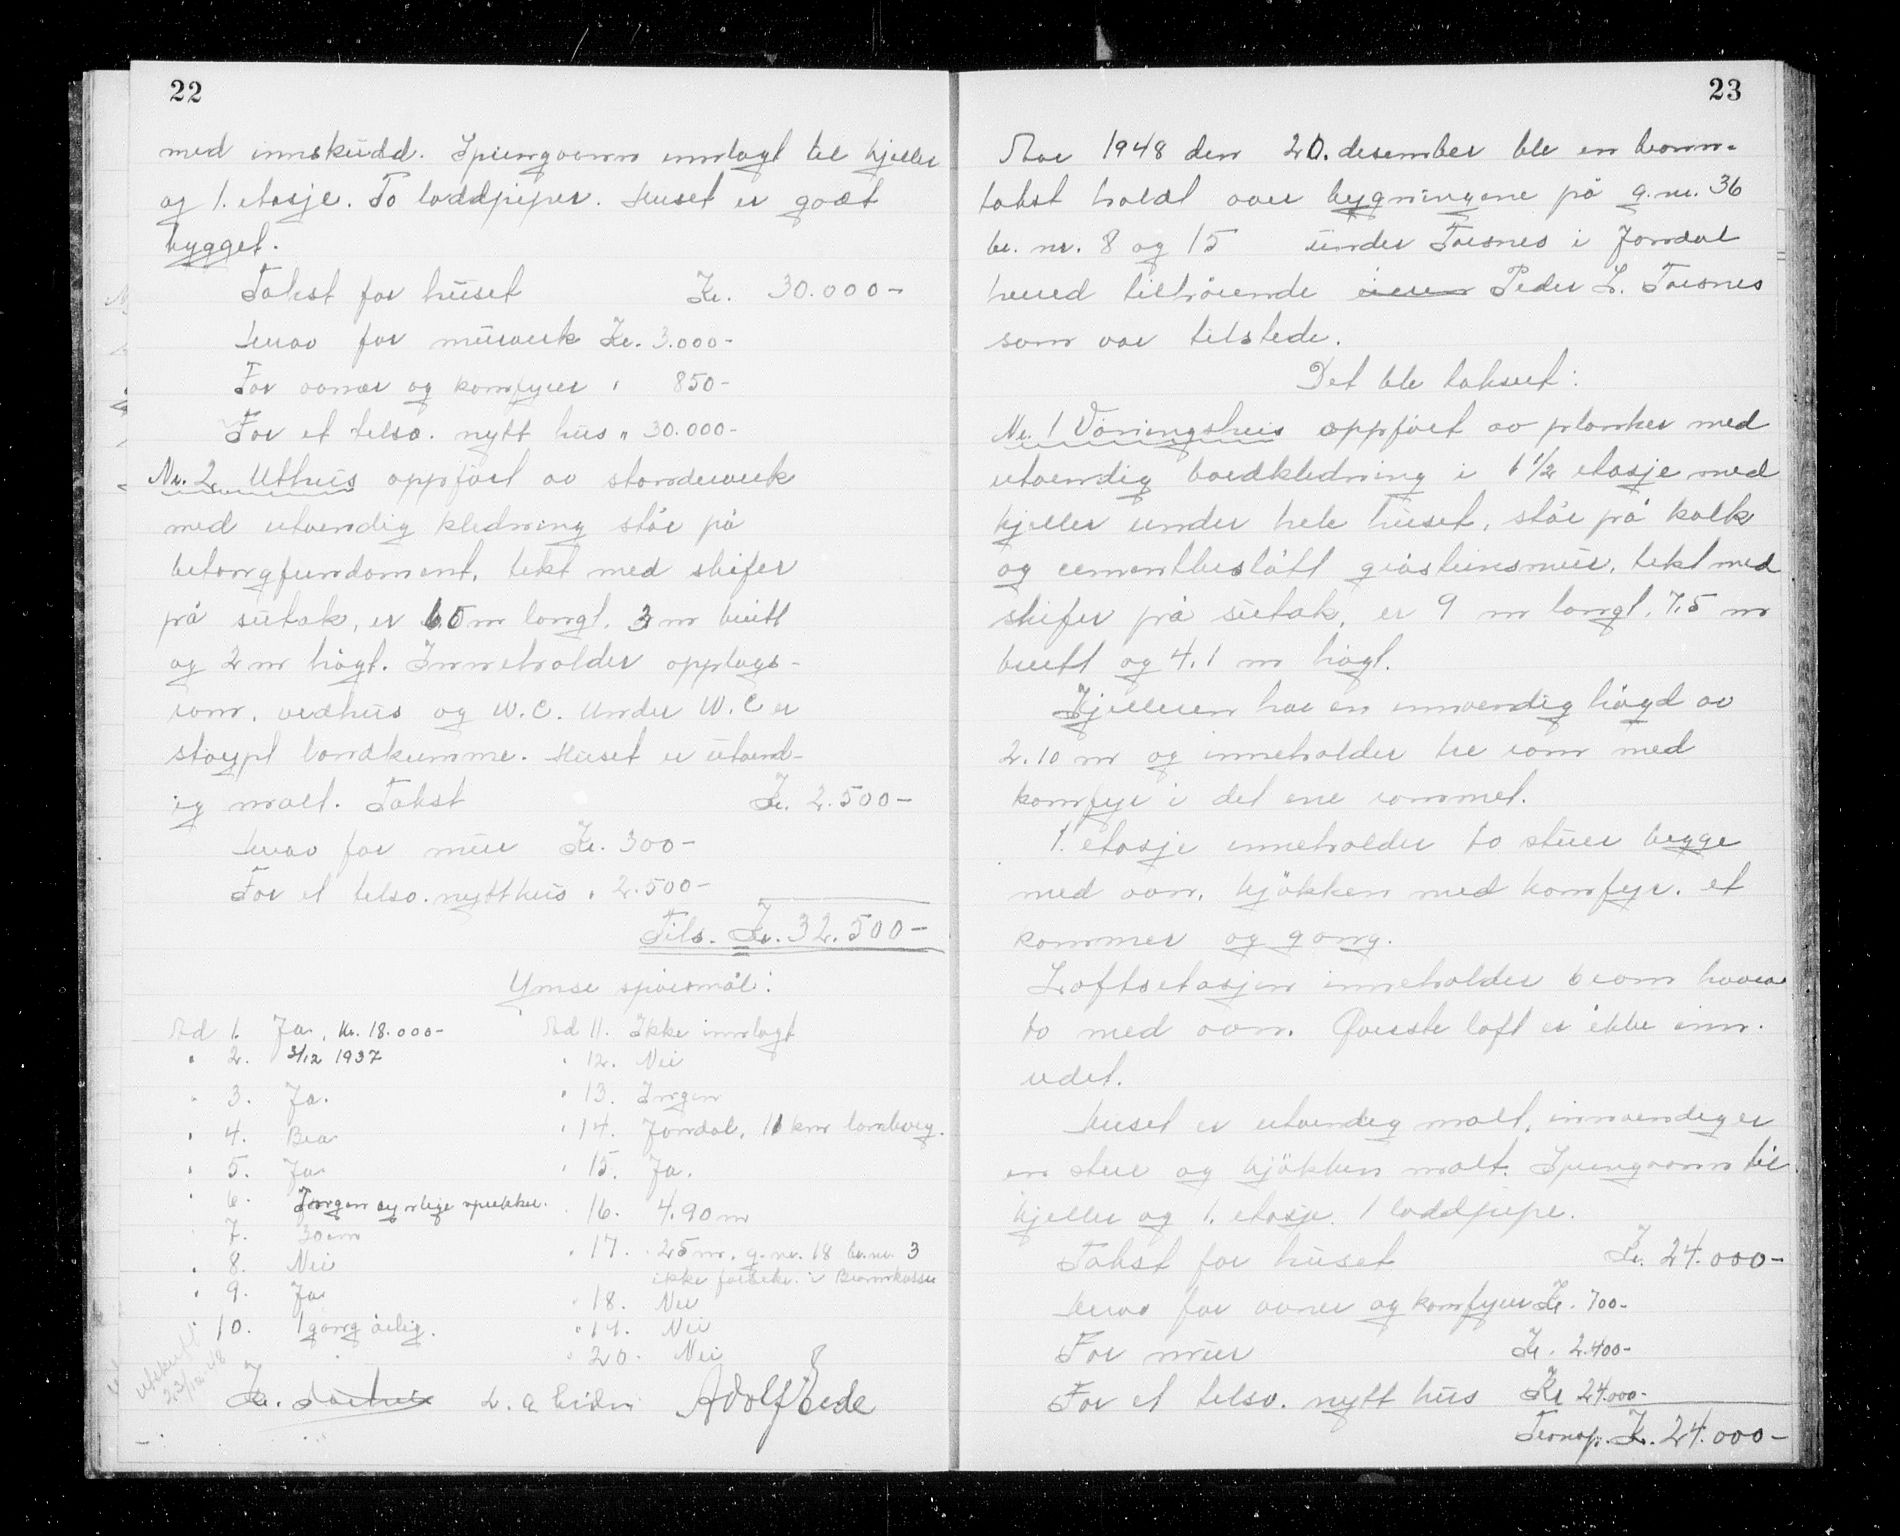 22
med innskudd. Springvann innlagt til kjeller
og 1. etasje. To loddpiper. Huset er godt
bygget.
Takst for huset Kr. 30.000-
Herav for murverk Kr. 3.000-
For ovner og komfyrer " 850-
For et tilsv. nytt hus " 30.000-
Nr. 2 Uthus oppført av standerverk
med utvendig kledning står på
betongfundament, tekt med skifer
på sutak, er 6.5 m langt, 3 m breitt
og 2 m høgt. Inneholder opplags-
rom, vedhus og W.C. Under W.C er
støypt landkumme. Huset er utvend-
ig malt. Takst Kr. 2.500-
Herav for mur Kr. 300-
For et tilsv. nytt hus " 2.500-
Tils. Kr. 32.500-
Ymse spørsmål:
Ad 1. Ja, Kr. 18.000-
" 2. 3/12 1937
" 3. Ja.
" 4. Bra
" 5. Ja
" 6. Ingen synlige sprekker.
7. 30 cm
" 8. Nei
" 9. Ja
" 10. 1 gang årlig.
Ad 11. Ikke innlagt
" 12. Nei
" 13. Ingen
" 14. Jondal, 11 km landveg.
" 15. Ja.
" 16. 4.90 m
" 17. 25 m. g.nr. 18 br.nr. 3
ikke forsikr. i Brannkasse
" 18. Nei
" 19. Nei
" 20. Nei
Utskrift
23/12-48
Adolf Eide
23
Aar 1948 den 20. desember ble en brann-
takst holdt over bygningene på g.nr. 36
br. nr. 8 og 15 under Torsnes i Jondal
herred tilhørende Peder L. Torsnes
som var tilstede.
Det ble taksert:
Nr. 1 Våningshus oppført av planker med
utvendig bordkledning i 1 1/2 etasje med
kjeller under hele huset, står på kalk
og cementbeslått gråsteinsmur, tekt med
skifer på sutak, er 9 m langt, 7,5 m
breitt og 4.1 m høgt.
Kjelleren har en innvendig høgd av
2.10 m og inneholder tre rom med
komfyr i det ene rommet.
1. etasje inneholder to stuer begge
med ovn, kjøkken med komfyr, et
kammer og gang.
Loftsetasjen inneholder 6 rom hvorav
to med ovn. Øverste loft er ikke inn-
redet.
Huset er utvendig malt, innvendig er
en stue og kjøkken malt. Springvann til
kjeller og 1. etasje. 1 loddpipe.
Takst for huset Kr. 24.000-
Herav for ovner og komfyrer Kr. 700-
For mur Kr. 2.400-
For et tilsv. nytt hus Kr 24.000-
Transp. Kr. 24.000-